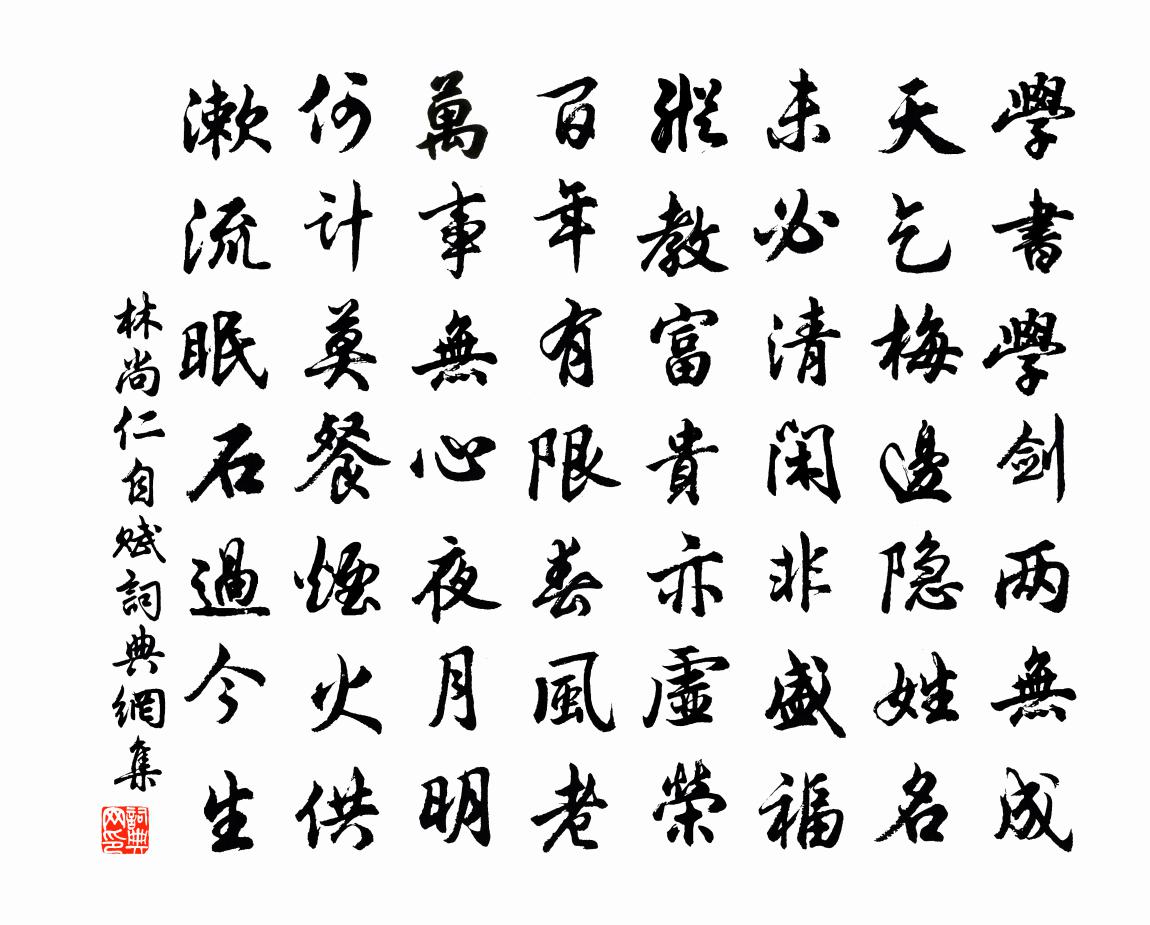 學書學剑两無成
天乞梅邊隐姓名
未必清閑非盛福
縱教富貴亦虛榮
百年有限春風老
萬事無心夜月明
何計莫餐煙火供
漱流眠石過今生
林尚仁自賦詞典網集
詞典网印